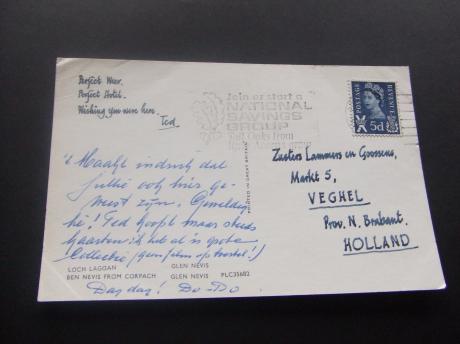 Perfect Hotel.
Wishing you were here.
Ted
Join or start a
NATIONAL
SAVINGS
GROUP
POSTAGE
REVENUE
5d
PRINTED IN GREAT BRITAIN
't Maakt indruk dat
jullie ook hier ge-
weest zijn.
hè! Ted koopt maar steeds
kaarten
Collectie
Zusters Lammers en Goossens,
Markt 5,
VEGHEL
Prov. N. Brabant.
HOLLAND
LOCH LAGGAN GLEN NEVIS
BEN NEVIS FROM CORPACH GLEN NEVIS PLC35682
Dag dag! Do-Do